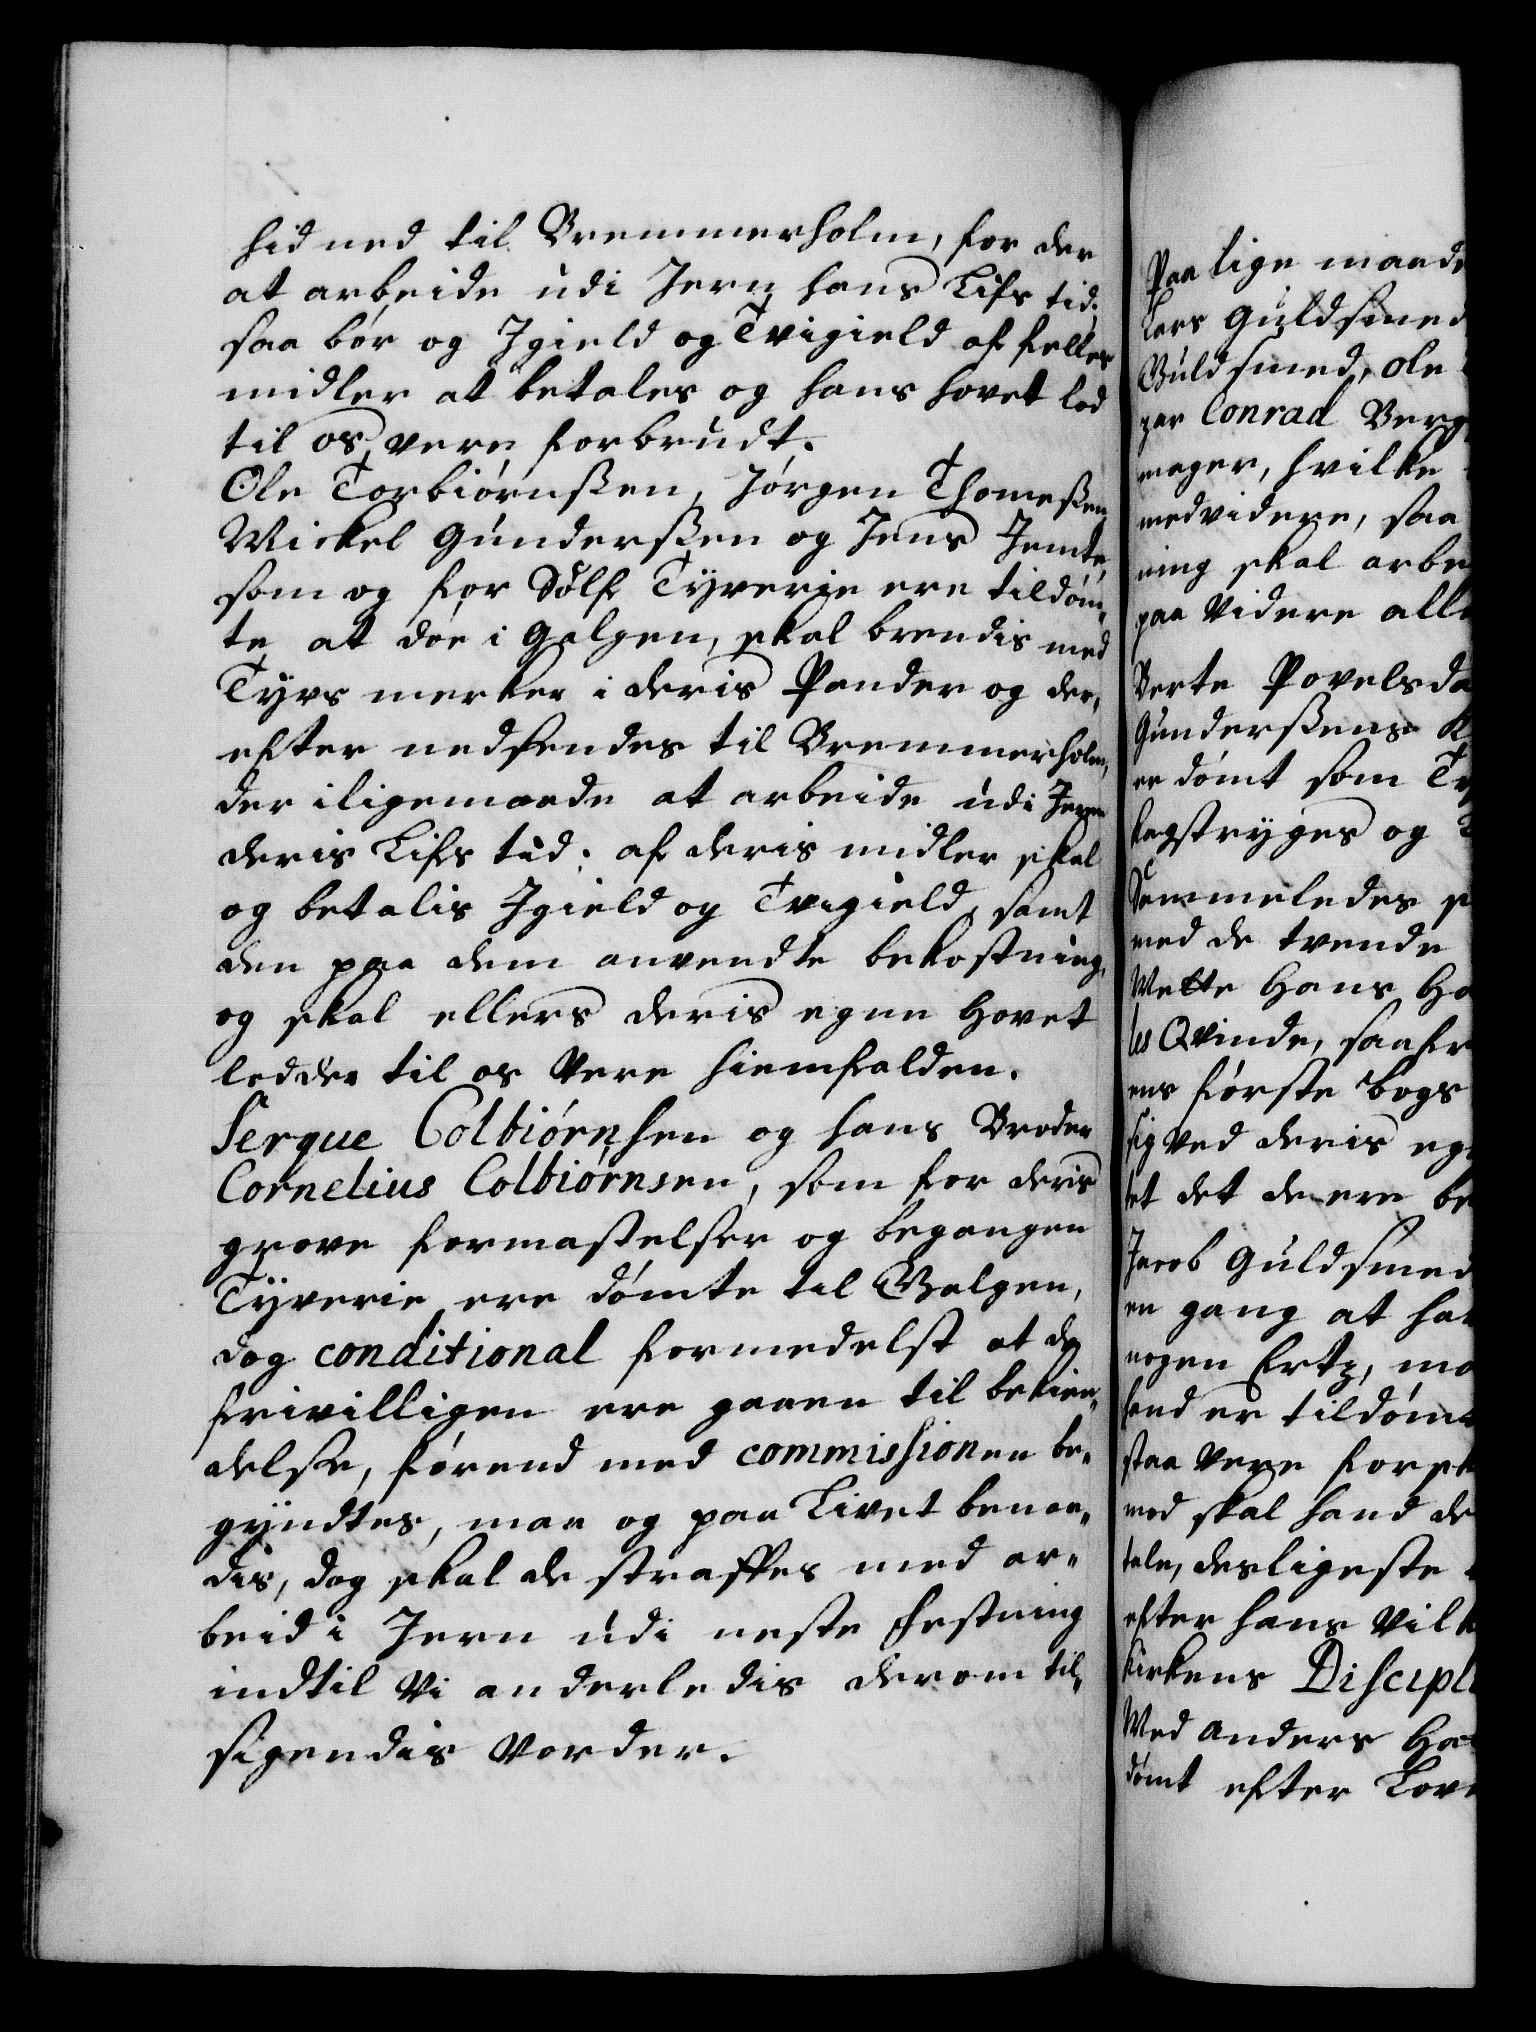 hid ned til Bremmerholm, for der
at arbeide udi Jern hans Lifs tid;
saa bør og Jgield og Tvigield af felles
midler at betales og hans hovet lod
til os vere forbrudt.
Ole Torbiørnßen, Jørgen Thomeßen
Mickel Gunderßen og Jens Jemte,
som og for Sølf Tyverie ere tildøm-
te at døe i Galgen, skal brendis med
Tyvs merker i deris Pander og der-
efter nedsendes til Bremmerholm,
der iligemaade at arbeide udi Jern
deris Lifs tid; af deris midler skal
og betalis Jgield og Tvigield, samt
den paa dem anvendte bekostning,
og skal ellers deris egen Hovet
lodder til os Vere hiemfalden.
Serque Colbiørnsen og hans Broder
Cornelius Colbiørnsen, som for deris
grove formastelser og begangen
Tyverie ere dømte til Galgen,
dog conditional formedelst at de
frivilligen ere gaaen til bekien-
delse, førend med commissionen be-
gyndtes, maa og paa Livet benaa-
dis, dog skal de straffes med ar-
beid i Jern udi neste Festning
indtil Vi anderledis derom til-
sigendis Vorder.
Paa lige maade
Lars Guldsmed
Guldsmed, Ole
per Conrad Berg
mager, hvilke
medvidere, saa
ning skal arbe
paa Videre all
Berte Povelsda
Gunderßens K
er dømt som Ty
kagstryges og
Sammeledes s
med de tvende
Mette Hans Ha
les Qvinde, saafr
ens første bogs
sig Ved deris eg
tet det de ere be
Jacob Guldsmed
en gang at ha
nogen Ertz, mo
hand er tildømt
staa Vere forsk
mod skal hand de
tale, desligeste
efter hans Vilk
Kirkens Discipli
Med Anders Ha
dømt efter Lov